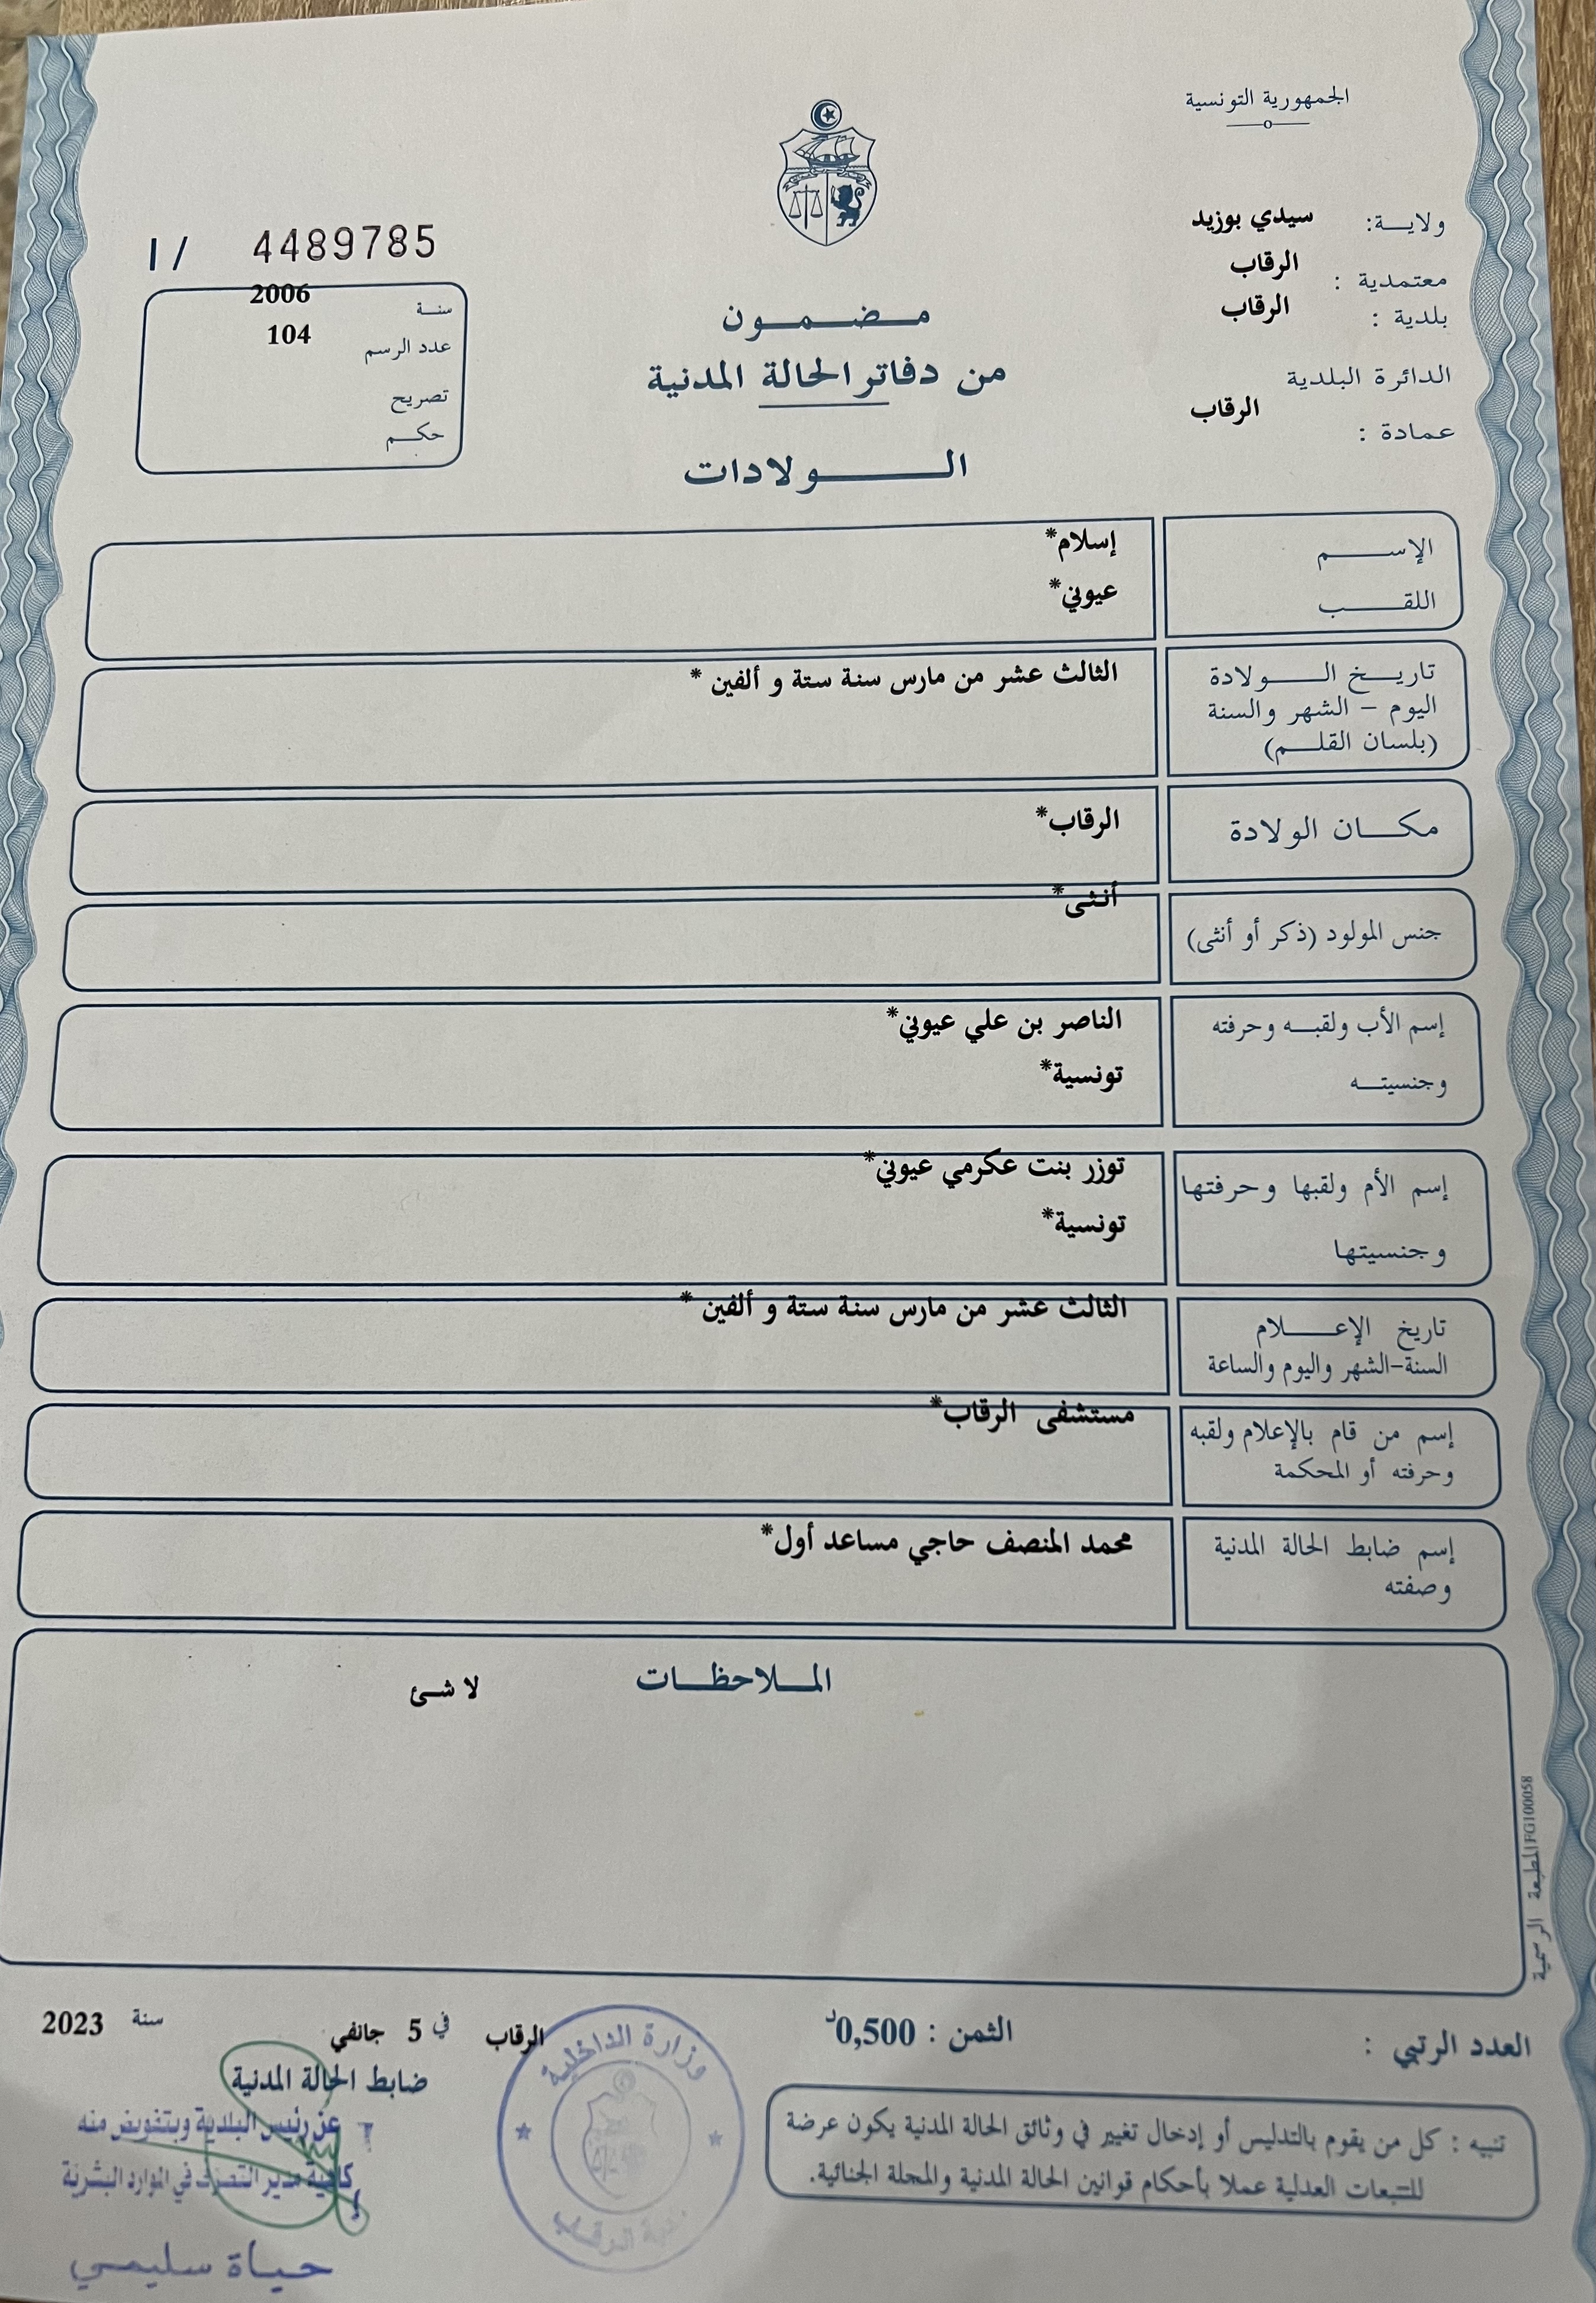 الجمهورية التونسية
ولاية: سيدي بوزيد
معتمدية : الرقاب
بلدية : الرقاب
الدائرة البلدية
عمادة : الرقاب
I / 4489785
سنة 2006
عدد الرسم 104
تصريح
حكم
مضمون
من دفاتر الحالة المدنية
الولادات
الإسم إسلام*
اللقب عيوني*
تاريخ الولادة الثالث عشر من مارس سنة ستة و ألفين *
اليوم – الشهر والسنة
(بلسان القلم)
مكان الولادة الرقاب*
جنس المولود (ذكر أو أنثى) أنثى*
إسم الأب ولقبه وحرفته الناصر بن علي عيوني*
وجنسيته تونسية*
إسم الأم ولقبها وحرفتها توزر بنت عكرمي عيوني*
وجنسيتها تونسية*
تاريخ الإعلام الثالث عشر من مارس سنة ستة و ألفين *
السنة-الشهر واليوم والساعة
إسم من قام بالإعلام ولقبه مستشفى الرقاب*
وحرفته أو المحكمة
إسم ضابط الحالة المدنية محمد المنصف حاجي مساعد أول*
وصفته
الملاحظات لا شئ
المطبعة الرسمية FG100058
العدد الرتبي :
الثمن : 0,500د
الرقاب في 5 جانفي سنة 2023
ضابط الحالة المدنية
عن رئيس البلدية وبتفويض منه
كاهية مدير التصرف في الموارد البشرية
حياة سليمي
وزارة الداخلية
بلدية الرقاب
تنبيه : كل من يقوم بالتدليس أو إدخال تغيير في وثائق الحالة المدنية يكون عرضة
للتتبعات العدلية عملا بأحكام قوانين الحالة المدنية والمجلة الجنائية.